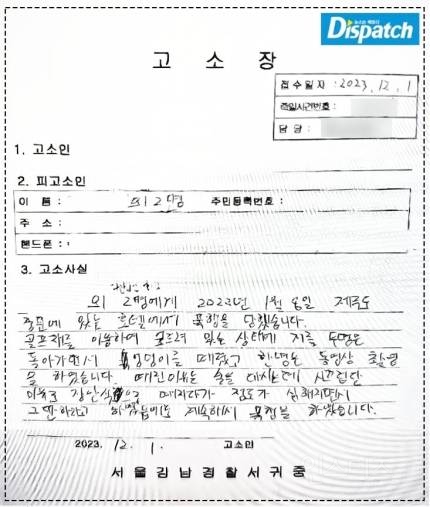 Dispatch
고 소 장
접수일자 : 2023. 12. 1
담 당 :
1. 고소인
2. 피고소인
이 름 : 외 2명 주민등록번호 :
주 소 :
핸드폰 :
3. 고소사실
외 2명에게 2023년 1월 6일 제주도
중문에 있는 호텔에서 폭행을 당했습니다.
골프채를 이용하여 엎드려 있는 상태에 저를 두명은
돌아가면서 엉덩이를 때렸고 한명은 동영상 촬영
을 하였습니다. 때린이유는 술을 마시는데 시끄럽단
이유로 장난식으로 때리다가 정도가 심해지면서
그만하라고 하였음에도 계속해서 폭행을 하였습니다.
2023. 12. 1. 고소인
서울강남경찰서귀중